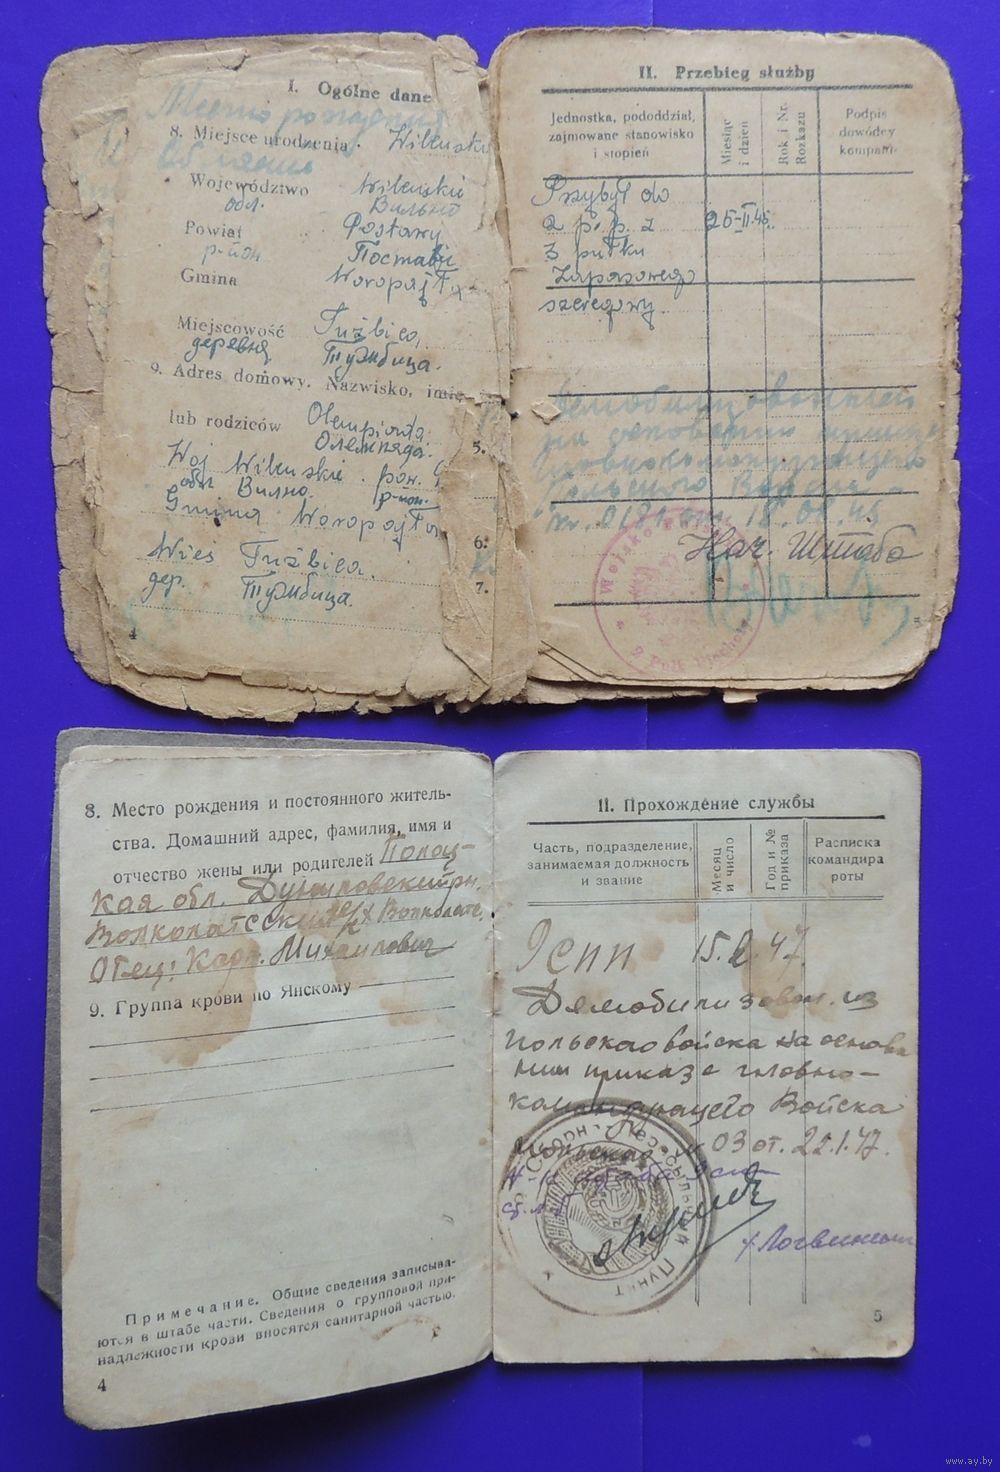 I. Ogólne dane
Место рождения
8. Miejsce urodzenia
Województwo Wileńskie
обл. Вильно
Powiat Postawy
р-йон Постави
Gmina
Miejscowość Tużbica,
деревня Тужбица.
9. Adres domowy. Nazwisko, imię
lub rodziców
Олемпяда.
Woj. Wileńskie. pow.
обл Вилно. р-йон.
Gmina
Wieś Tużbica.
дер. Тужбица.
4
5.
6.
7.
II. Przebieg służby
Jednostka, pododdział, zajmowane stanowisko i stopień
Miesiąc i dzień
Rok i Nr. Rozkazu
Podpis dowódcy kompani
Przybył do
2 p. p. z 25-II.45.
3 pułku
Zapasowego
szeregowy.
Демобилизованный
на основании
Польского Войска
Нач. Штаба
Wojsko
9 Pułk Piechoty
8. Место рождения и постоянного житель-
ства. Домашний адрес, фамилия, имя и
отчество жены или родителей Полоц-
кая обл. Дуниловский р-н.
Отец: Карп. Михайлович
9. Группа крови по Янскому
Примечание. Общие сведения записыва-
ются в штабе части. Сведения о групповой при-
надлежности крови вносятся санитарной частью.
4
II. Прохождение службы
Часть, подразделение, занимаемая должность и звание
Месяц и число
Год и № приказа
Расписка командира роты
9 СПП 15.2.47.
Демобилизован. из
Польскаовойска на основа
нии приказа главно-
командующего Войска
03 от. 22.1.47.
Сборно-Пересыльный Пункт
5
www.ay.by